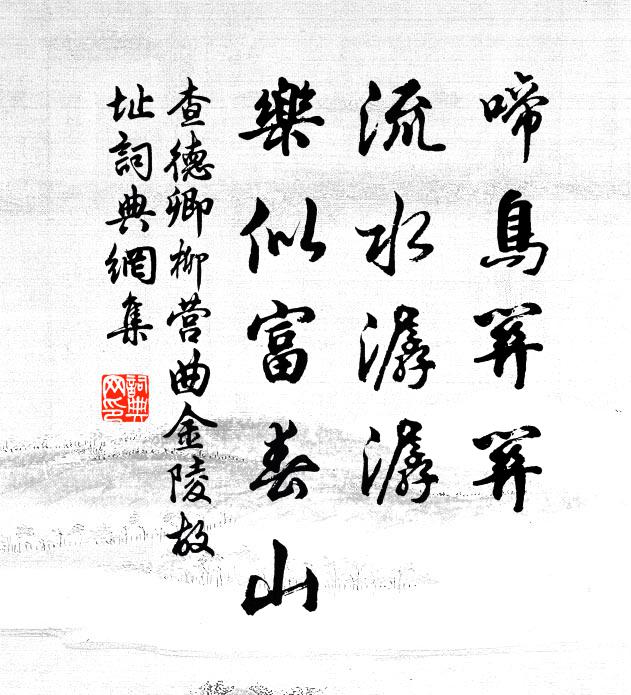 啼鳥關關
流水潺潺
樂似富春山
查德卿柳营曲金陵故
址詞典網集
詞典网印